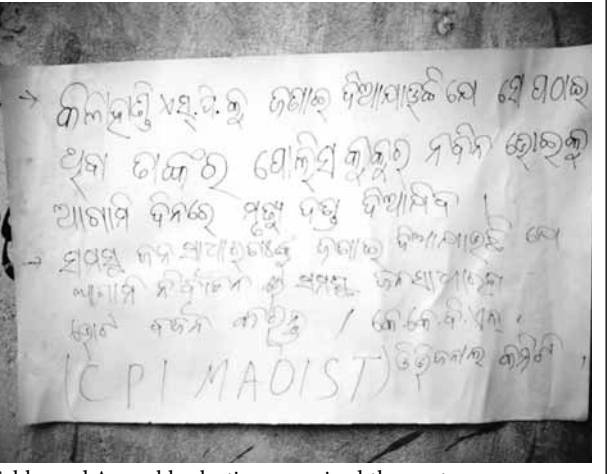 → କଳାହାଣ୍ଡି ଏସ୍.ପି.କୁ ଜଣାଇ ଦିଆଯାଉଛି ଯେ ସେ ପଠାଇ
ଥିବା ତାଙ୍କର ପୋଲିସ କୁକୁର ନବିନ ଭୋଇକୁ
ଆଗାମି ଦିନରେ ମୃତ୍ୟୁ ଦଣ୍ଡ ଦିଆଯିବ ।
→ ସମସ୍ତ ଜନସାଧାରଣଙ୍କୁ ଜଣାଇ ଦିଆଯାଉଛି ଯେ
ଆଗାମି ନିର୍ବାଚନ କୁ ସମସ୍ତ ଜନସାଧାରଣ
ଭୋଟ ବର୍ଜନ କରନ୍ତୁ । କେ.କେ.ବି.ଏନ.
(CPI MAOIST) ଡିଭିଜନାଲ କମିଟି ।